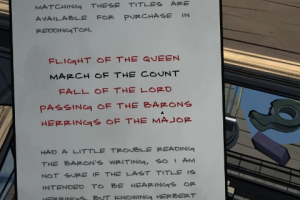 MATCHING THESE TITLES ARE
AVAILABLE FOR PURCHASE IN
REDDINGTON.
FLIGHT OF THE QUEEN
MARCH OF THE COUNT
FALL OF THE LORD
PASSING OF THE BARONS
HERRINGS OF THE MAJOR
HAD A LITTLE TROUBLE READING
THE BARON'S WRITING, SO I AM
NOT SURE IF THE LAST TITLE IS
INTENDED TO BE HEARINGS OR
HERRINGS, BUT KNOWING HERBERT